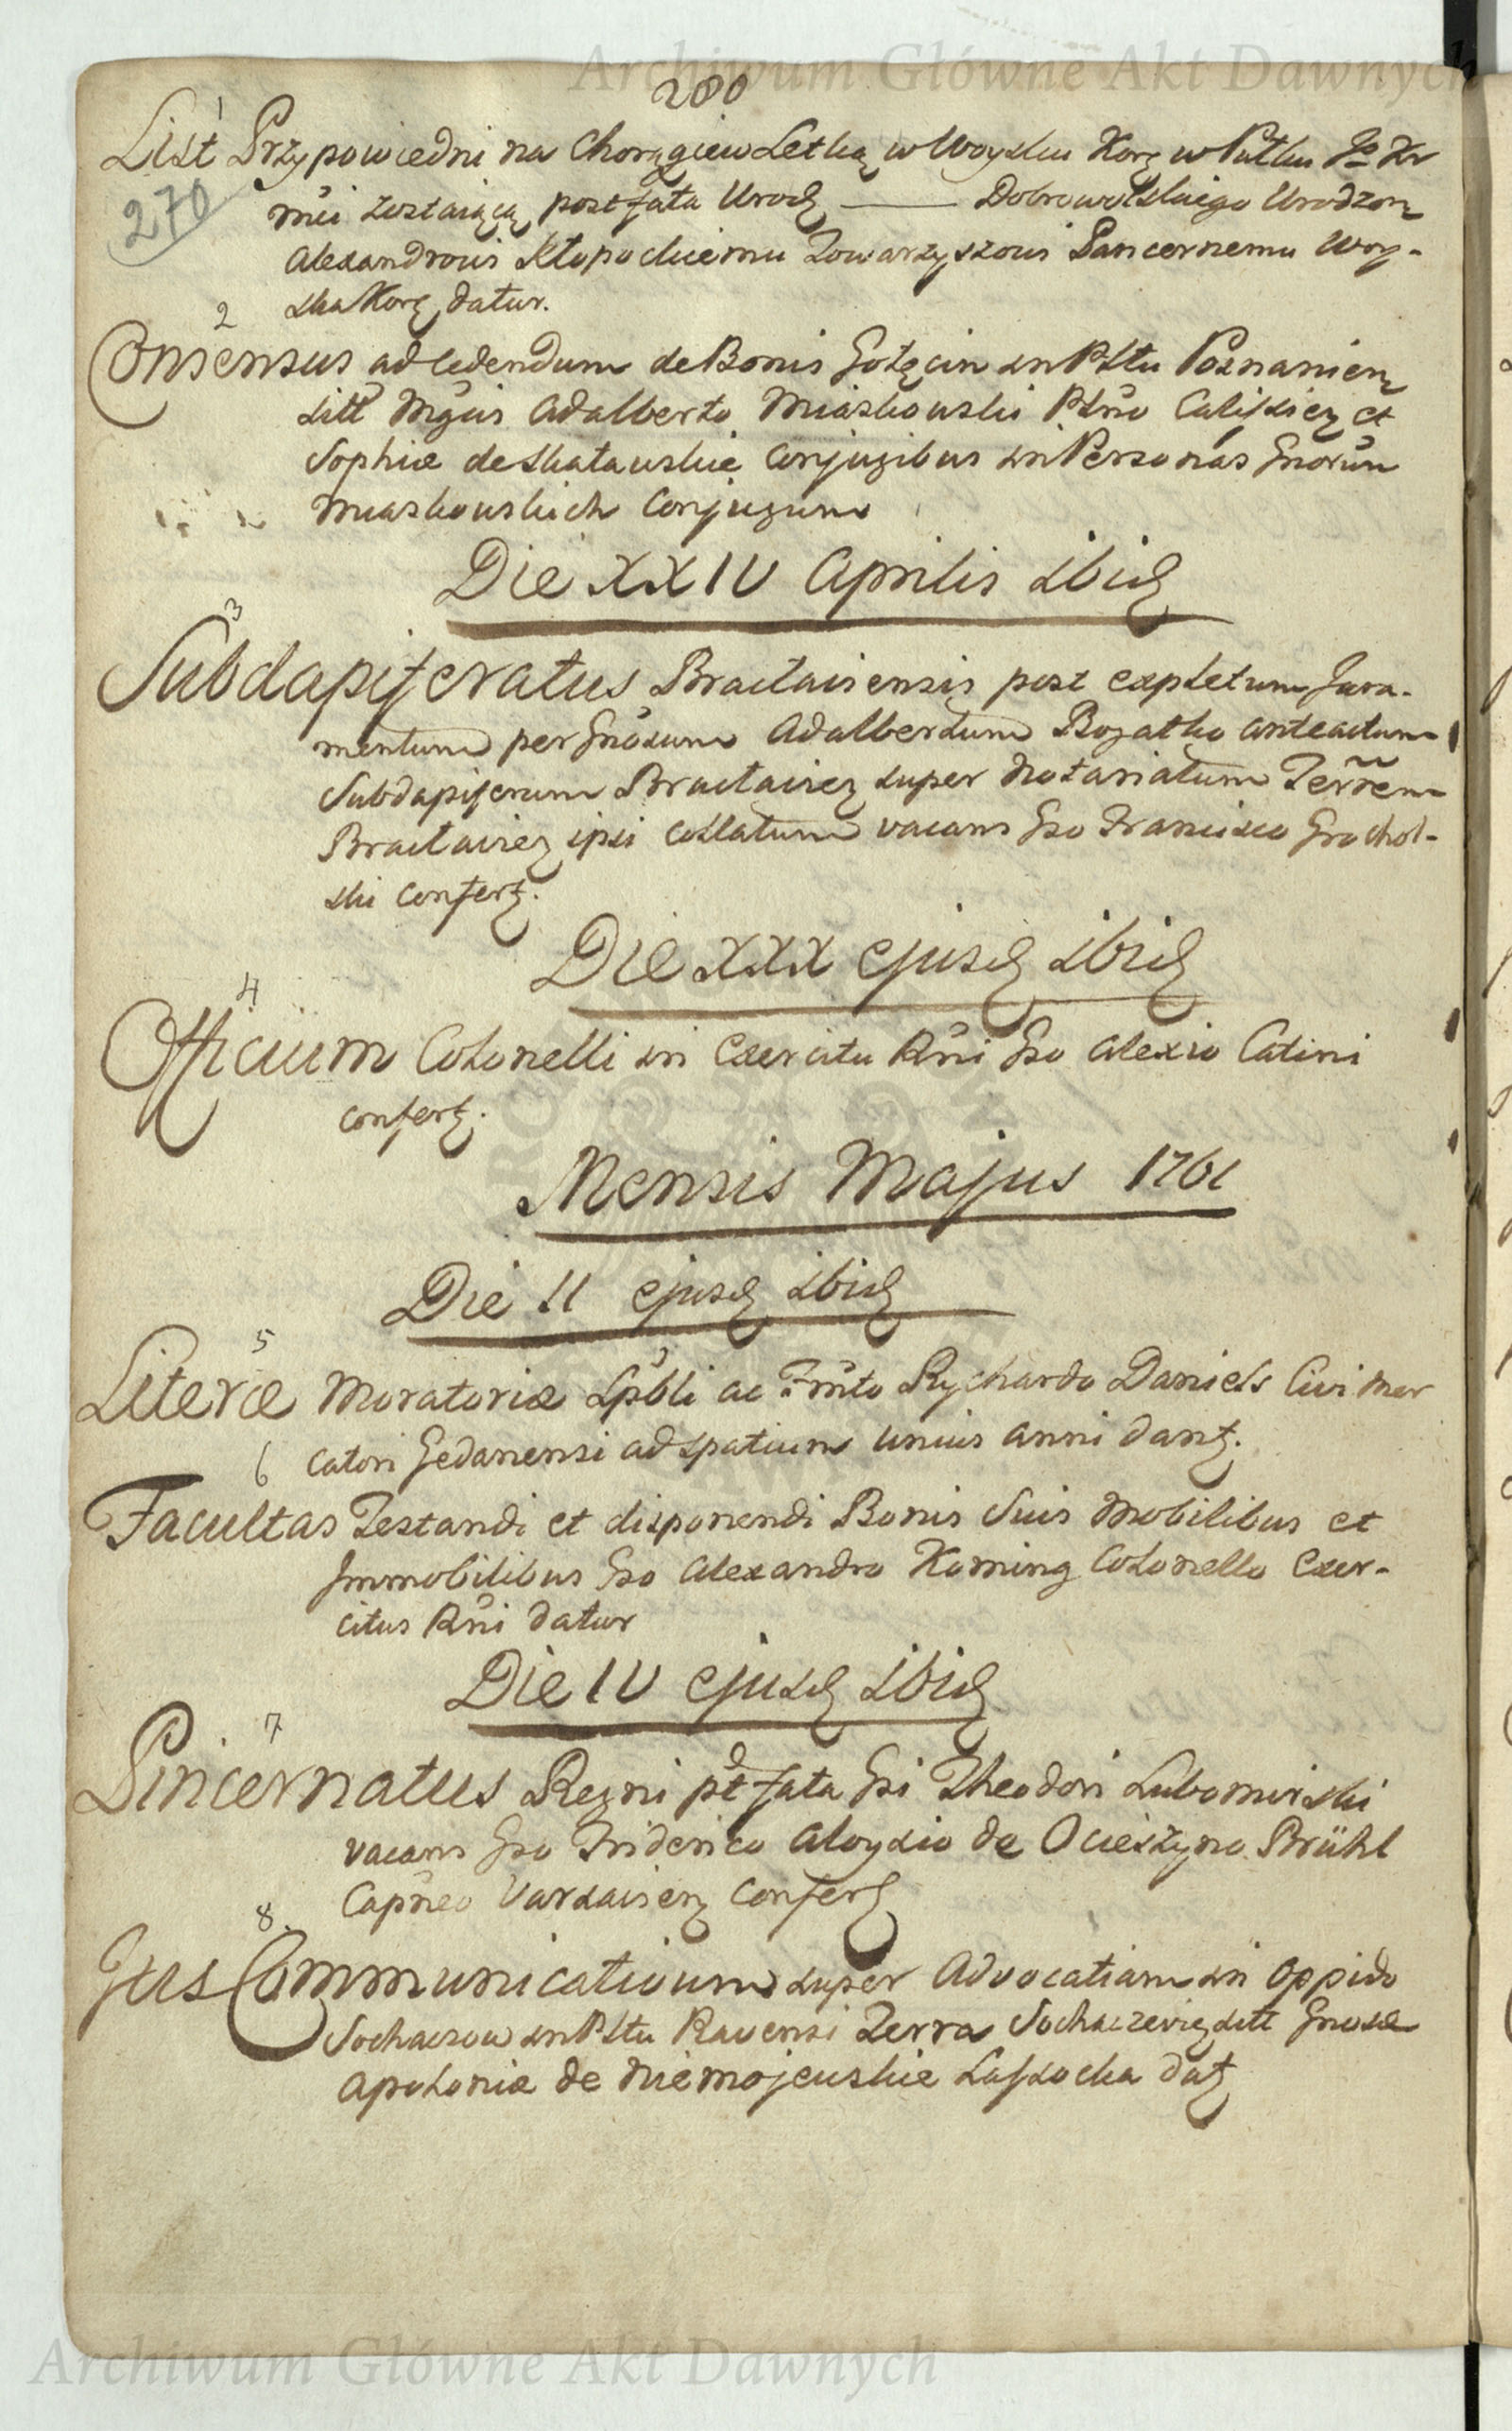 Archiwum Główne Akt Dawnych
280
1
List Przypowiedni na Chorągiew Letką w Woysku Korę w Pułku
270
mći zostaiącą post fata Urodz —— Dobrowolskiego Urodzonę
Alexandrowi Kłopockiemu Towarzyszowi Pancernemu Woy-
ska Korę datur.
2
Consensus ad cedendum de Bonis Gołęcin in Pltu Posnanienę
sitt Mgcis Adalberto Miaskowski Ptno Calissieę et
Sophiæ de Skałauskie Conjugibus in Personas Gnorum
Miaskouskich Conjugum
Die XXIV Aprilis ibid
3
Subdapiferatus Braclaviensis post expletum Jura-
mentum per Gnosum Adalbertum Bogatko anteactum
Subdapiferum Braclavieę super Notariatum Terrem
Braclavieę ipsi Collatum vacans Gso Francisco Grochol-
ski Confert.
Die XXX ejusd ibid
4
Officium Colonelli in Exercitu Rni Gso Alexio Catini
confert.
Mensis Majus 1761
Die II ejusd ibid
5
Literæ Moratoriæ Spbli ac Fmto Rychardo Daniels Civi Mer
catori Gedanensi ad spatium unius anni dant.
6
Facultas Testandi et disponendi Bonis Suis Mobilibus et
Immobilibus Gso Alexandro Koming Colonello Exer-
citus Rni datur
Die IV ejusd ibid
7
Pincernatus Regni pt fata Gsi Theodori Lubomirski
vacans Gso Friderico Aloysio de Ocieszyno Brühl
Capneo Varsavienę Confert
8.
Jus Communicativum super Advocatiam in Oppido
Sochaczow in Pltu Ravensi Terra Sochaczevieę sitt Gnosæ
Apoloniæ de Niemojeuskie Lassocka dat
Archiwum Główne Akt Dawnych